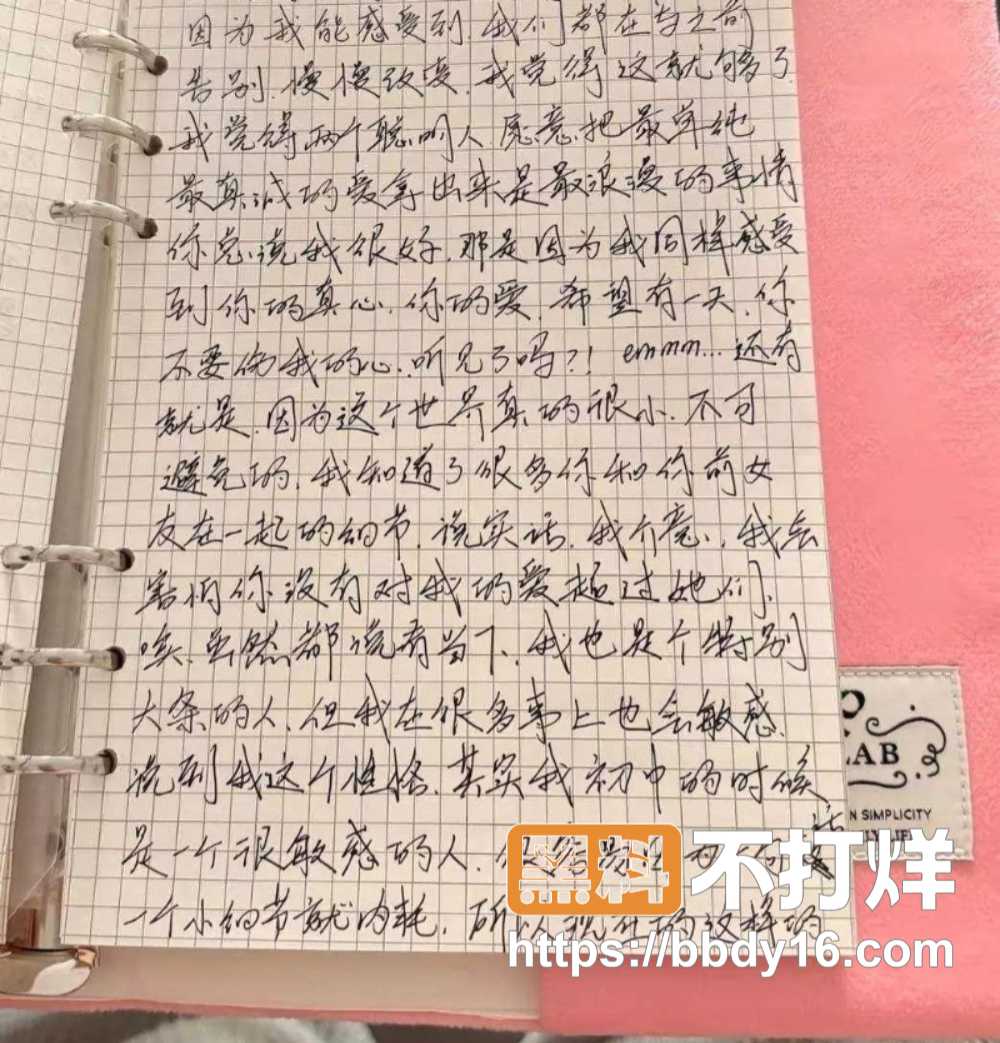 因为我能感受到,我们都在与之前
告别,慢慢改变,我觉得这就够了
我觉得两个聪明人愿意把最单纯
最真诚的爱拿出来是最浪漫的事情
你总说我很好,那是因为我同样感受
到你的真心,你的爱,希望有一天,你
不要伤我的心,听见了吗?! emmm...还有
就是,因为这个世界真的很小,不可
避免的,我知道了很多你和你前女
友在一起的细节,说实话,我介意,我会
害怕你没有对我的爱超过她们,
唉,虽然都说看当下,我也是个特别
大条的人,但我在很多事上也会敏感,
说到我这个性格,其实我初中的时候
是一个很敏感的人,很容易
一个小细节就内耗,所以现在的这样的
AB
N SIMPLICITY
黑料不打烊
https://bbdy16.com